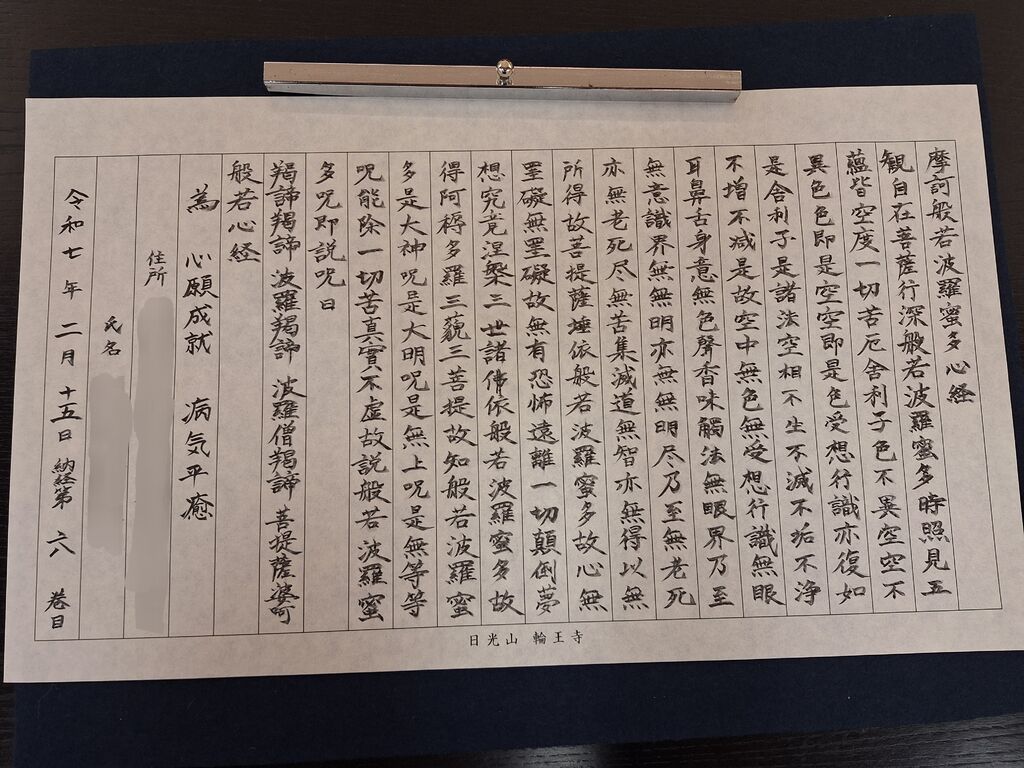 摩訶般若波羅蜜多心経
観自在菩薩行深般若波羅蜜多時照見五
蘊皆空度一切苦厄舎利子色不異空空不
異色色即是空空即是色受想行識亦復如
是舎利子是諸法空相不生不滅不垢不浄
不増不減是故空中無色無受想行識無眼
耳鼻舌身意無色聲香味觸法無眼界乃至
無意識界無無明亦無無明尽乃至無老死
亦無老死尽無苦集滅道無智亦無得以無
所得故菩提薩埵依般若波羅蜜多故心無
罣礙無罣礙故無有恐怖遠離一切顛倒夢
想究竟涅槃三世諸佛依般若波羅蜜多故
得阿耨多羅三藐三菩提故知般若波羅蜜
多是大神呪是大明呪是無上呪是無等等
呪能除一切苦真實不虚故説般若波羅蜜
多呪即説呪曰
羯諦羯諦 波羅羯諦 波羅僧羯諦 菩提薩婆呵
般若心経
為 心願成就 病気平癒
住所
氏名
令和七年 二月 十五日 納経第 六八 巻目
日光山 輪王寺